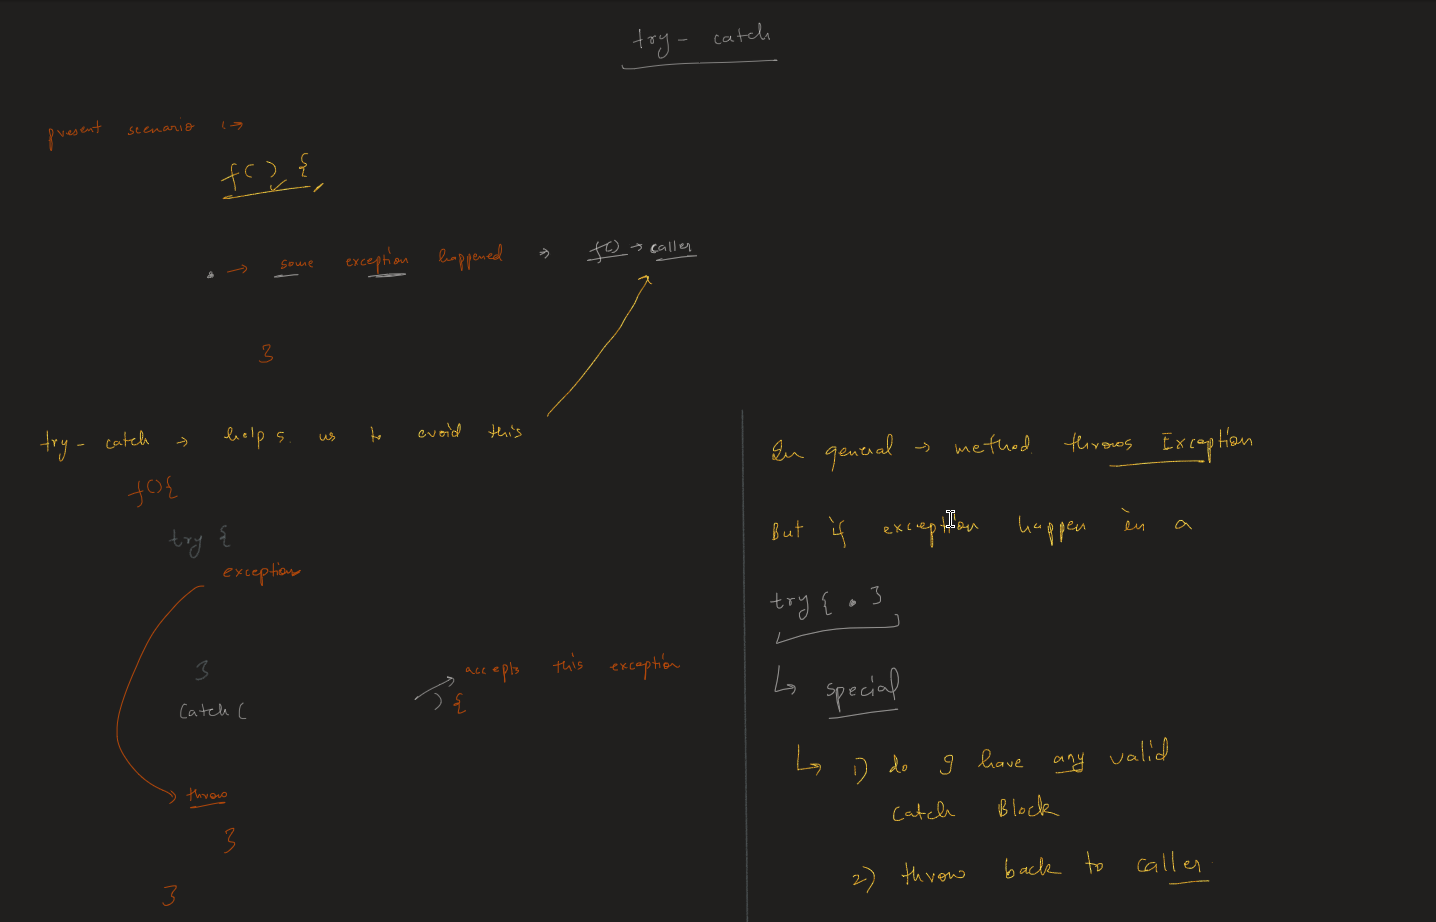 try - catch
present scenario :->
f() {
. -> some exception happened -> f() -> caller
}
try - catch -> helps us to avoid this
f(){
try {
exception
}
catch ( ) { -> accepts this exception
throw
}
}
In general -> method throws Exception
But if exception happen in a
try { . }
↳ special
↳ 1) do I have any valid
catch Block
2) throw back to caller